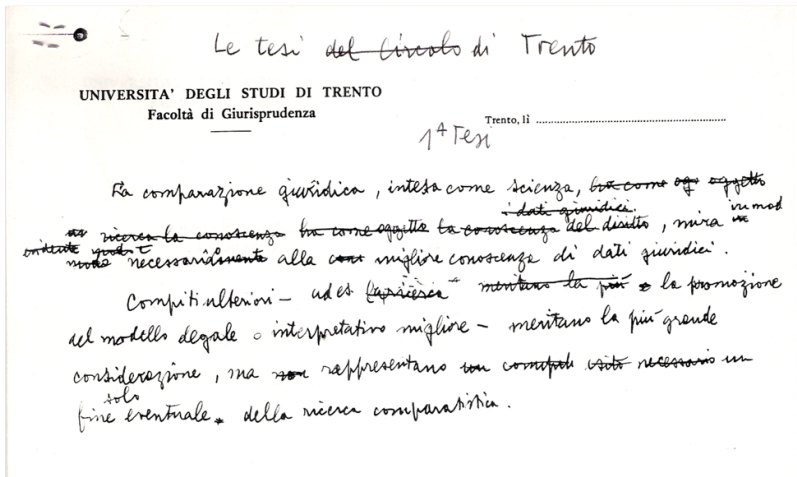 Le tesi del Circolo di Trento
UNIVERSITA' DEGLI STUDI DI TRENTO
Facoltà di Giurisprudenza
Trento, lì
1ª Tesi
La comparazione giuridica, intesa come scienza, ha come og oggetto
i dati giuridici in mod
ricerca la conoscenza ha come oggetto la conoscenza del diritto, mira
necessariamente alla migliore conoscenza di dati giuridici.
Compiti ulteriori – ad es la ricerca meritano la più la promozione
del modello legale o interpretativo migliore – meritano la più grande
considerazione, ma non rappresentano un compito necessario un
solo
fine eventuale della ricerca comparatistica.